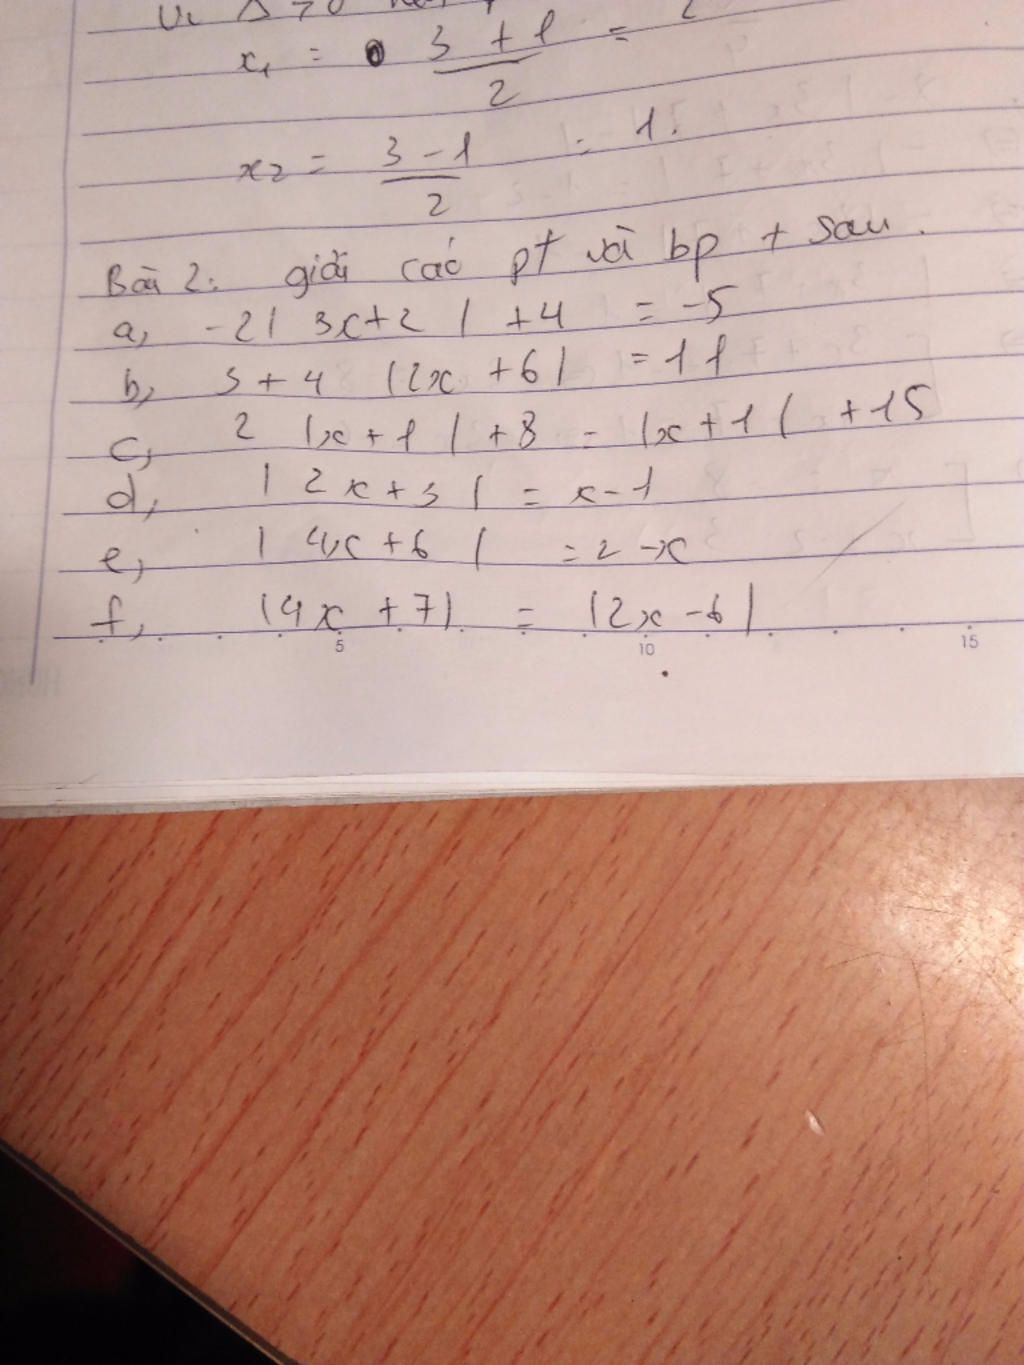 Δ > 0
x₁ = 3 + 1 / 2 = 2
x₂ = 3 - 1 / 2 = 1.
Bài 2: giải các pt và bp + sau.
a, -2| 3x+2 | +4 = -5
b, 3+4 |2x +6| = 11
c, 2 |x+1| +8 = |x+1| +15
d, | 2x+3 | = x-1
e, | 4x+6 | = 2-x
f, |4x +7| = |2x -6|
5 10 15